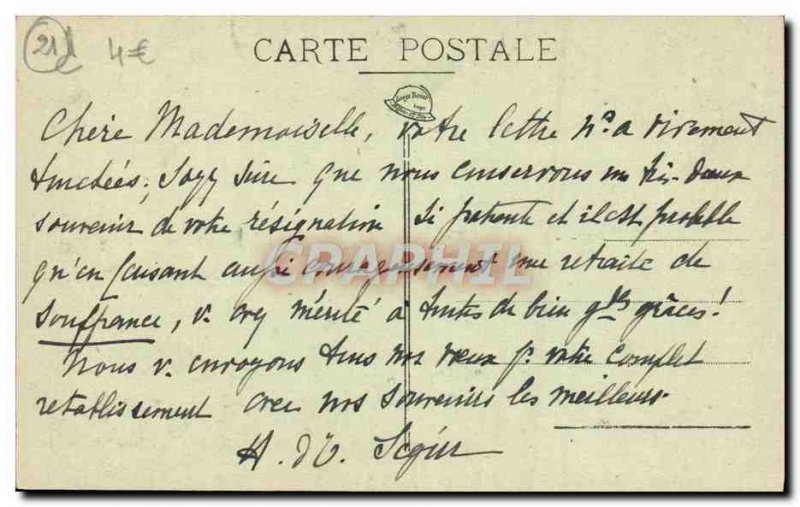 21 4€
CARTE POSTALE
Chère Mademoiselle, votre lettre n.s a vivement
touchées; soyez sûre que nous conservons un très-doux
souvenir de votre résignation si patiente et il est probable
qu'en faisant aussi courageusement une retraite de
souffrance, v. avez mérité à toutes de bien gdes grâces!
Nous v. envoyons tous nos vœux p. votre complet
rétablissement avec nos souvenirs les meilleurs.
CPAPHIL